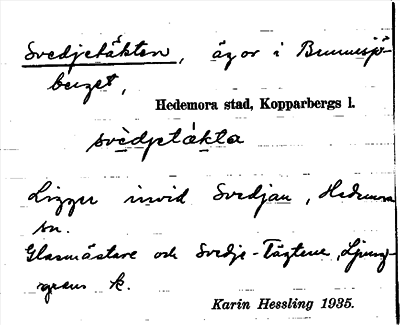 Svedjetäkten, ägor i Brunnsjö-
berget,
Hedemora stad, Kopparbergs l.
svèdjetákta
Ligger invid Svedjan, Hedemora
sn.
Glasmästare och Svedje-Tägterne, Ljung-
grens k.
Karin Hessling 1935.